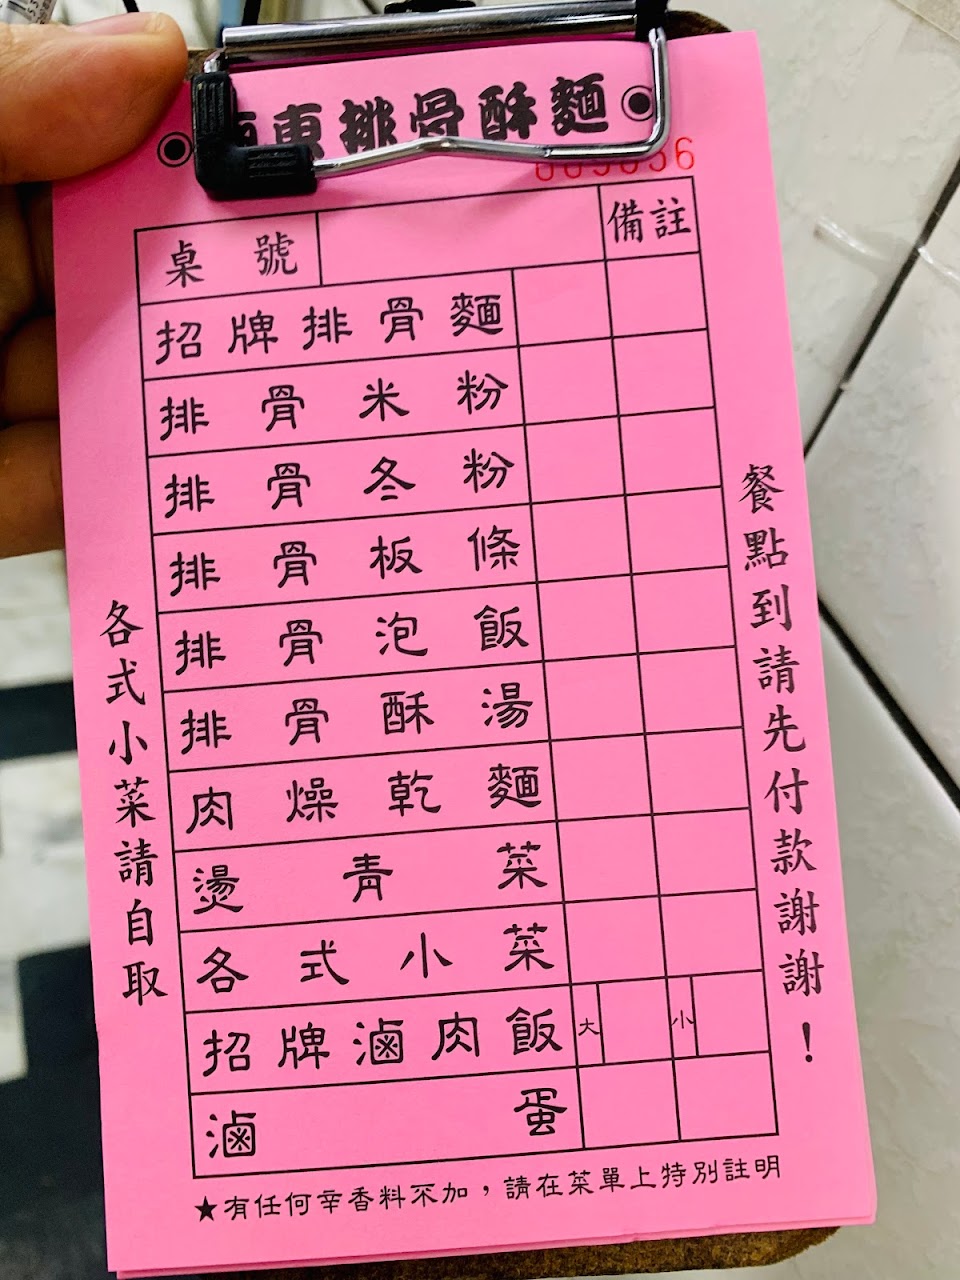 東排骨酥麵
桌號 備註
招牌排骨麵
排骨米粉
排骨冬粉
排骨板條
排骨泡飯
排骨酥湯
肉燥乾麵
燙青菜
各式小菜
招牌滷肉飯 大 小
滷蛋
★有任何辛香料不加，請在菜單上特別註明
各式小菜請自取
餐點到請先付款謝謝！